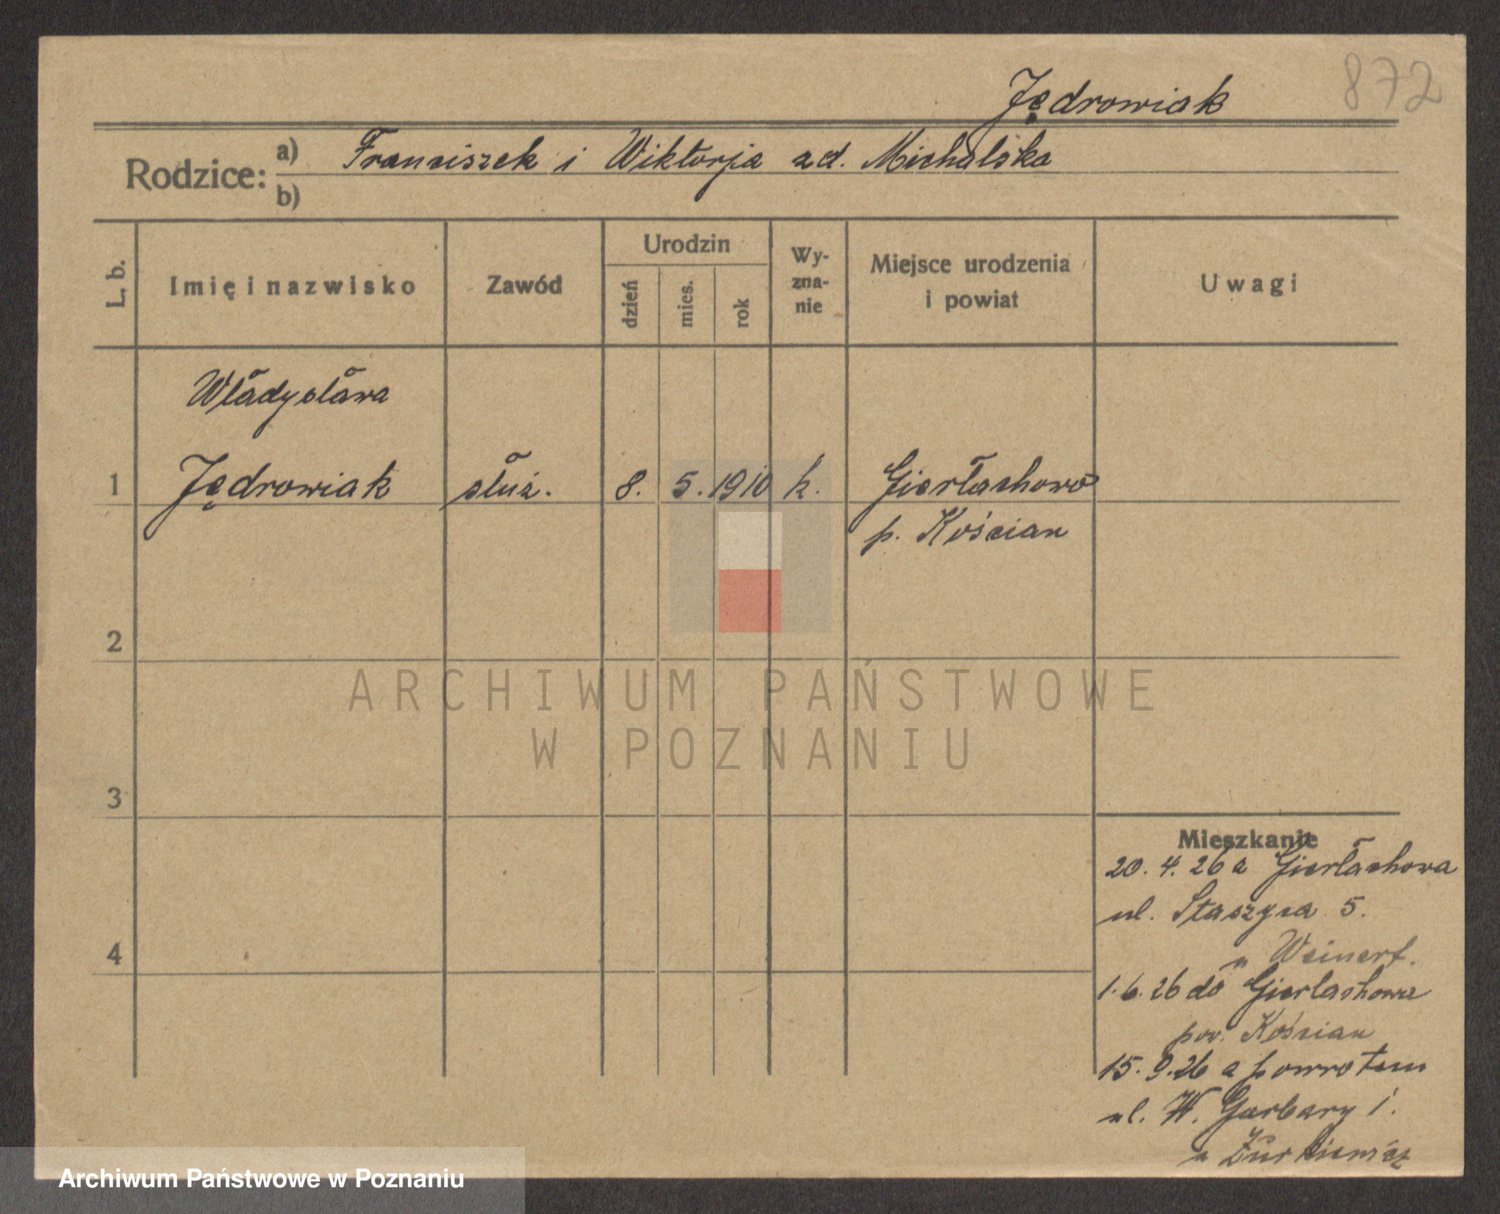 Jędrowiak
872
Rodzice: a) Franciszek i Wiktorja zd. Michalska
b)
L. b.
Imię i nazwisko
Zawód
Urodzin
dzień
mies.
rok
Wy-
zna-
nie
Miejsce urodzenia
i powiat
Uwagi
Władysława
1 Jędrowiak służ. 8. 5. 1910 k. Gierłachowo
p. Kościan
2
3
4
ARCHIWUM PAŃSTWOWE
W POZNANIU
Mieszkanie
20. 4. 26 z Gierłachowa
ul. Staszyca 5.
u Weinert.
1. 6. 26 do Gierłachowa
pow. Kościan
15. 9. 26 z powrotem
ul. W. Garbary 1.
u
Archiwum Państwowe w Poznaniu